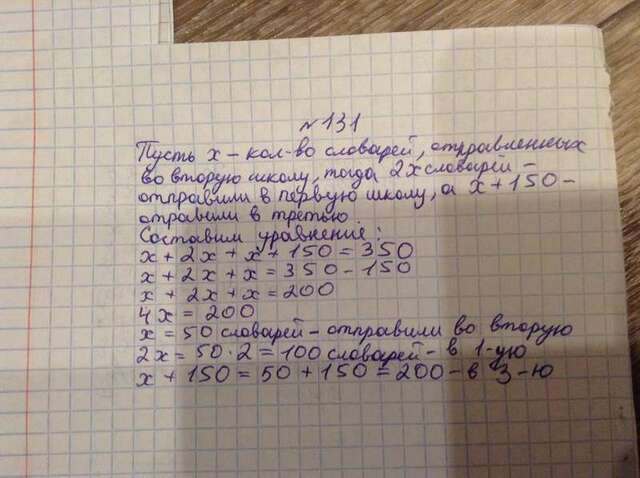 №131
Пусть x – кол-во словарей, отправленных
во вторую школу, тогда 2x словарей –
отправили в первую школу, а x + 150 –
отравили в третью.
Составим уравнение:
x + 2x + x + 150 = 350
x + 2x + x = 350 – 150
x + 2x + x = 200
4x = 200
x = 50 словарей – отправили во вторую
2x = 50 · 2 = 100 словарей – в 1-ую
x + 150 = 50 + 150 = 200 – в 3-ю